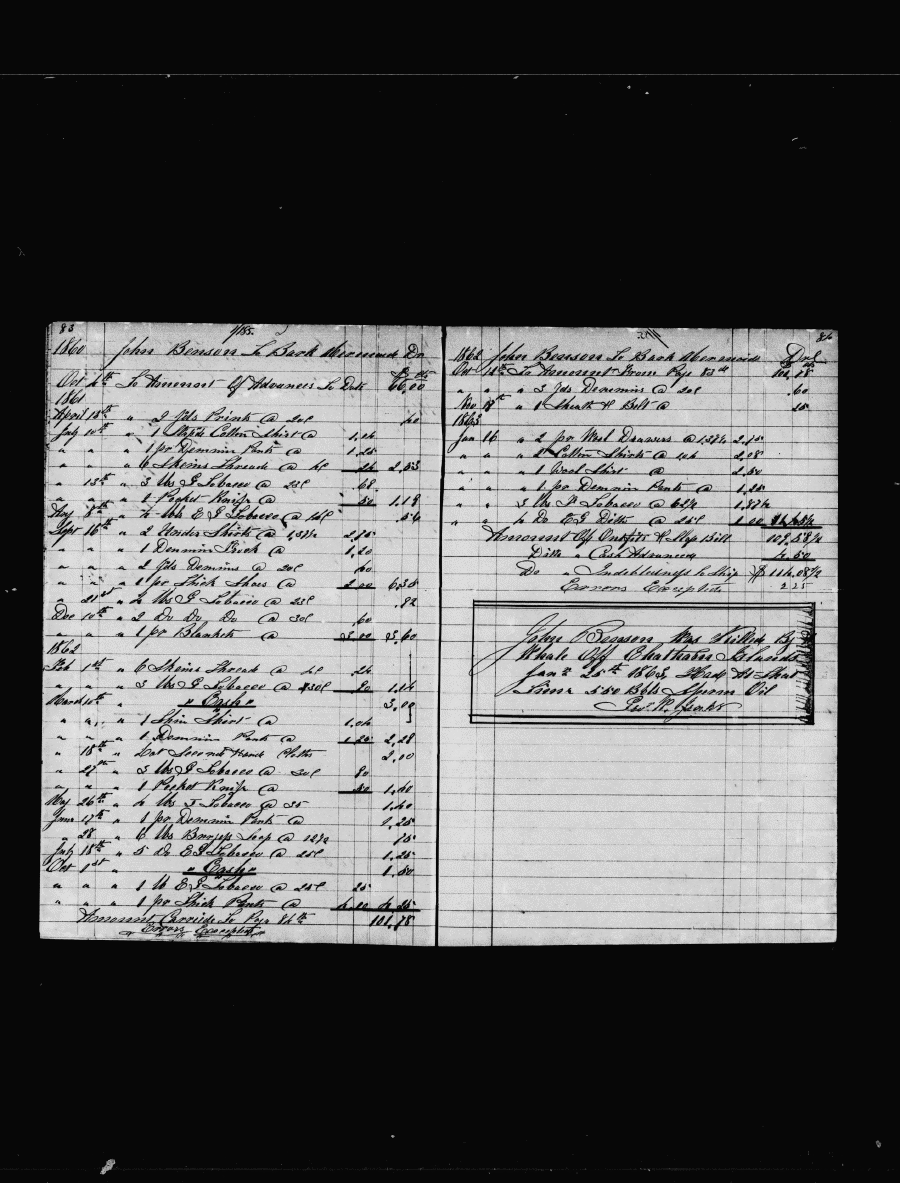 83
1860 John Benson To Bark Dr
$ cts
Oct 4th To Amount Of Advances To Date 66,00
1861
April 18th " 2 Yds Prints @ 20c 40
July 10th " 1 Cotton Shirt @ 1,04
" " " 1 pr Demmin Pants @ 1,25
" " " 6 Skeins Thread @ 4c 24 2,53
" 13th " 3 lbs J Tobacco @ 23c 68
" " " 1 Pocket Knife @ 50 1,18
Aug 8th " 4 lbs E J Tobacco @ 14c 56
Sept 16th " 2 Under Shirts @ 1,37½ 2,75
" " " 1 Denmin Frock @ 1,20
" " " 2 Yds Demins @ 20c 40
" " " 1 pr Thick Shoes @ 2 00 6,35
" 21st " lbs J Tobacco @ 23c ,82
Dec 10th " 2 Do Do Do @ 30c ,60
" " " 1 pr Blankets @ 3,00 3,60
1862
Feb 1st " 6 Skeins Thread @ 4c 24
" " " 3 lbs J Tobacco @ 30c 90 1,14
March 10th " " Cash " 3,00
" " " 1 Thin Shirt @ 1,04
" " " 1 Demmin Pants @ 1,25 2,28
" 18th " Second Hand Clothes 2,00
" 27th " 3 lbs J Tobacco @ 30c 90
" " " 1 Pocket Knife @ 50 1,40
May 26th " 4 lbs J Tobacco @ 35 1,40
June 17th " 1 pr Demmin Pants @ 1,25
" 28 " 6 lbs Soap @ 12½ 75
July 18th " 5 Do E J Tobacco @ 25c 1,25
Oct 1st " Cash " 1,50
" " " 1 lb E J Tobacco @ 25c 25
" " " 1 pr Thick Pants @ 4,00 4,25
Amount Carried To Page 84th 101,78
Errors Excepted
84
1862 John Benson To Bark Dr
Oct 14th To Amount From Page 83rd
" " " 3 Yds Denemins @ 20c ,60
Nov 8th " 1 Sheath & Belt @ 25
1863
Jan 16 " 2 pr Wool Drawers @ 1,37½ 2,75
" " " 2 Cotton Shirts @ 104 2,08
" " " 1 Wool Shirt @ 2,50
" " " 1 pr Demmin Pants @ 1,25
" " " 3 lbs Tobacco @ 62½ 1,87½
" " " 4 Do E J Ditto @ 25c 1 00
Amount Of Outfits & Slop Bill 109,58½
Ditto " Cash Advanced 4,50
Do " Indebtedness to Ship $ 114,08½
Errors Excepted 2 25
John Benson Was Killed By a
Whale Off Chatham Islands
Jany 25th 1863, Had At That
Time 550 Bbls Sperm Oil